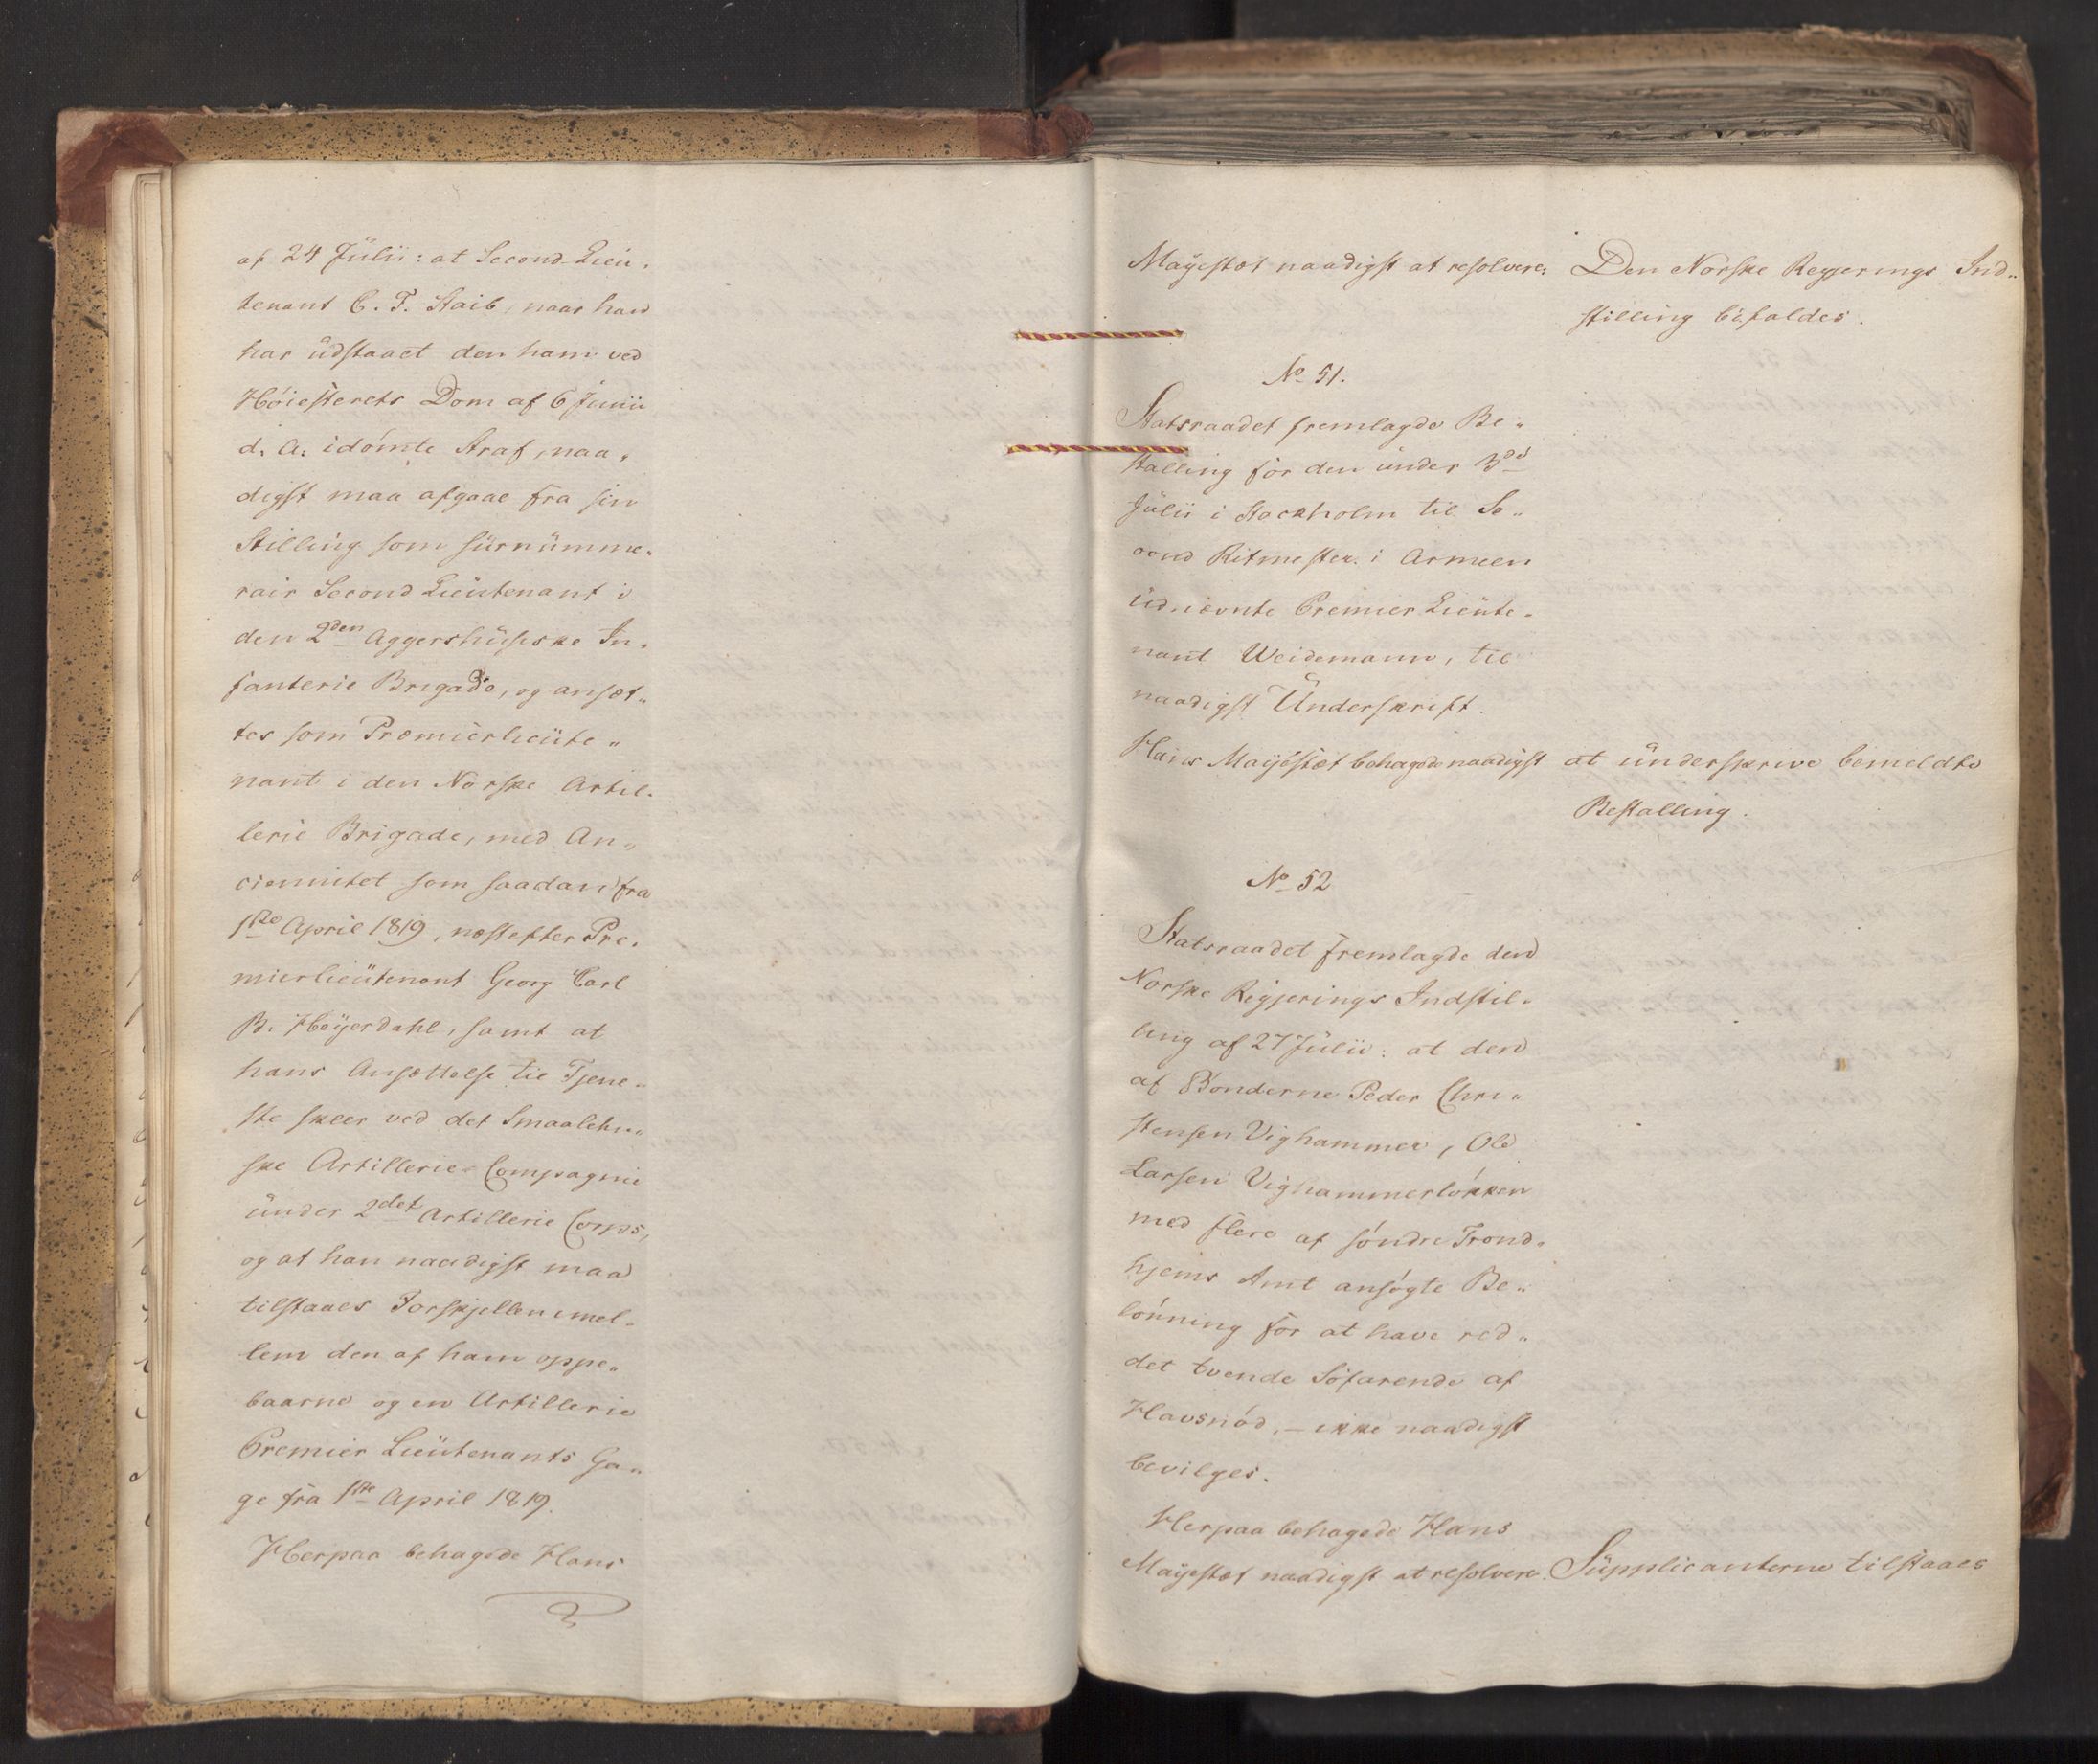 af 24 Julii: at Second-Lieu-
tenant C. F. Staib, naar han
har udstaaet den ham ved
Höiesterets Dom af 6 Junii
d. A. idömte Straf, naa-
digst maa afgaae fra sin
Stilling som surnumme-
rair Second Lieutenant i
den 2den Aggershusiske In-
fanterie Brigade, og ansæt-
tes som Premierlieute-
nant i den Norske Artil-
lerie Brigade, med An-
ciennitet som saadan fra
1ste April 1819, næstefter Pre-
mierlieutenant Georg Carl
B. Heyerdahl, samt at
hans Ansættelse til Tjene-
ste skeer ved det Smaalehn-
ske Artillerie Compagnie
under 2det Artillerie Corps,
og at han naadigst maa
tilstaaes Forskjellen imel-
lem den af ham oppe-
baarne og en Artillerie
Premier Lieutenants Ga-
ge fra 1ste April 1819.
Herpaa behagede Hans
Mayestæt naadigst at resolvere: Den Norske Regjerings Ind-
stilling bifaldes.
No 51.
Statsraadet fremlagde Be-
stalling for den under 3die
Julii i Stockholm til Se-
cond Ritmester i Armeen
udnævnte Premier Lieute-
nant Weidemann, til
naadigst Underskrift.
Hans Mayestæt behagede naadigst at underskrive bemeldte
Bestalling.
No 52
Statsraadet fremlagde den
Norske Regjerings Indstil-
ling af 27 Julii: at den
af Bönderne Peder Chri-
stensen Vighammer, Ole
Larsen Vighammerlökken
med flere af söndre Trond-
hjems Amt ansögte Be-
lönning for at have red-
det tvende Söfarende af
Havsnöd, – ikke naadigst
bevilges.
Herpaa behagede Hans
Mayestæt naadigst at resolvere: Supplicanterne tilstaaes